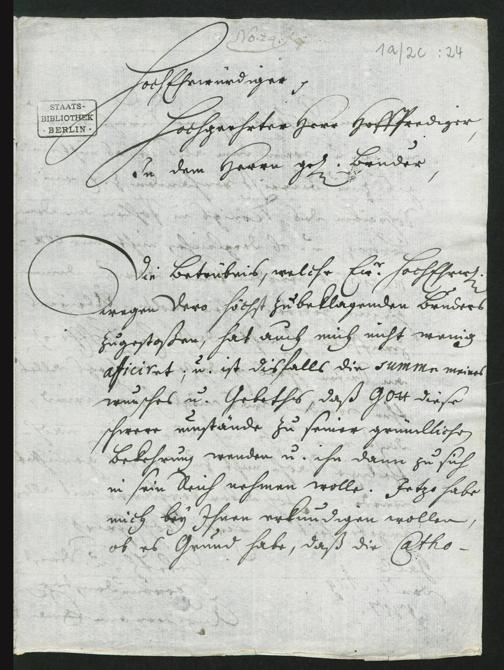 No. 29.
1a/2c : 24
STAATS-
BIBLIOTHEK
· BERLIN ·
HochEhrwürdiger,
Hochgeehrter Herr Hoffprediger,
In dem Herrn gel. Bruder,
Die Betrübnis, welche Ew. HochEhrw.
wegen dero höchst zubeklagenden Bruders
zugestoßen, hat auch mich nicht wenig
afficiret, u. ist disfalls die summe meines
wunsches u. Gebeths, daß Gott diese
schwere umstände zu seiner gründlichen
Bekehrung wenden u. ihn dann zu sich
in sein Reich nehmen wolle. Jetzo habe
mich bey Ihnen erkundigen wollen,
ob es Grund habe, daß die Catho-